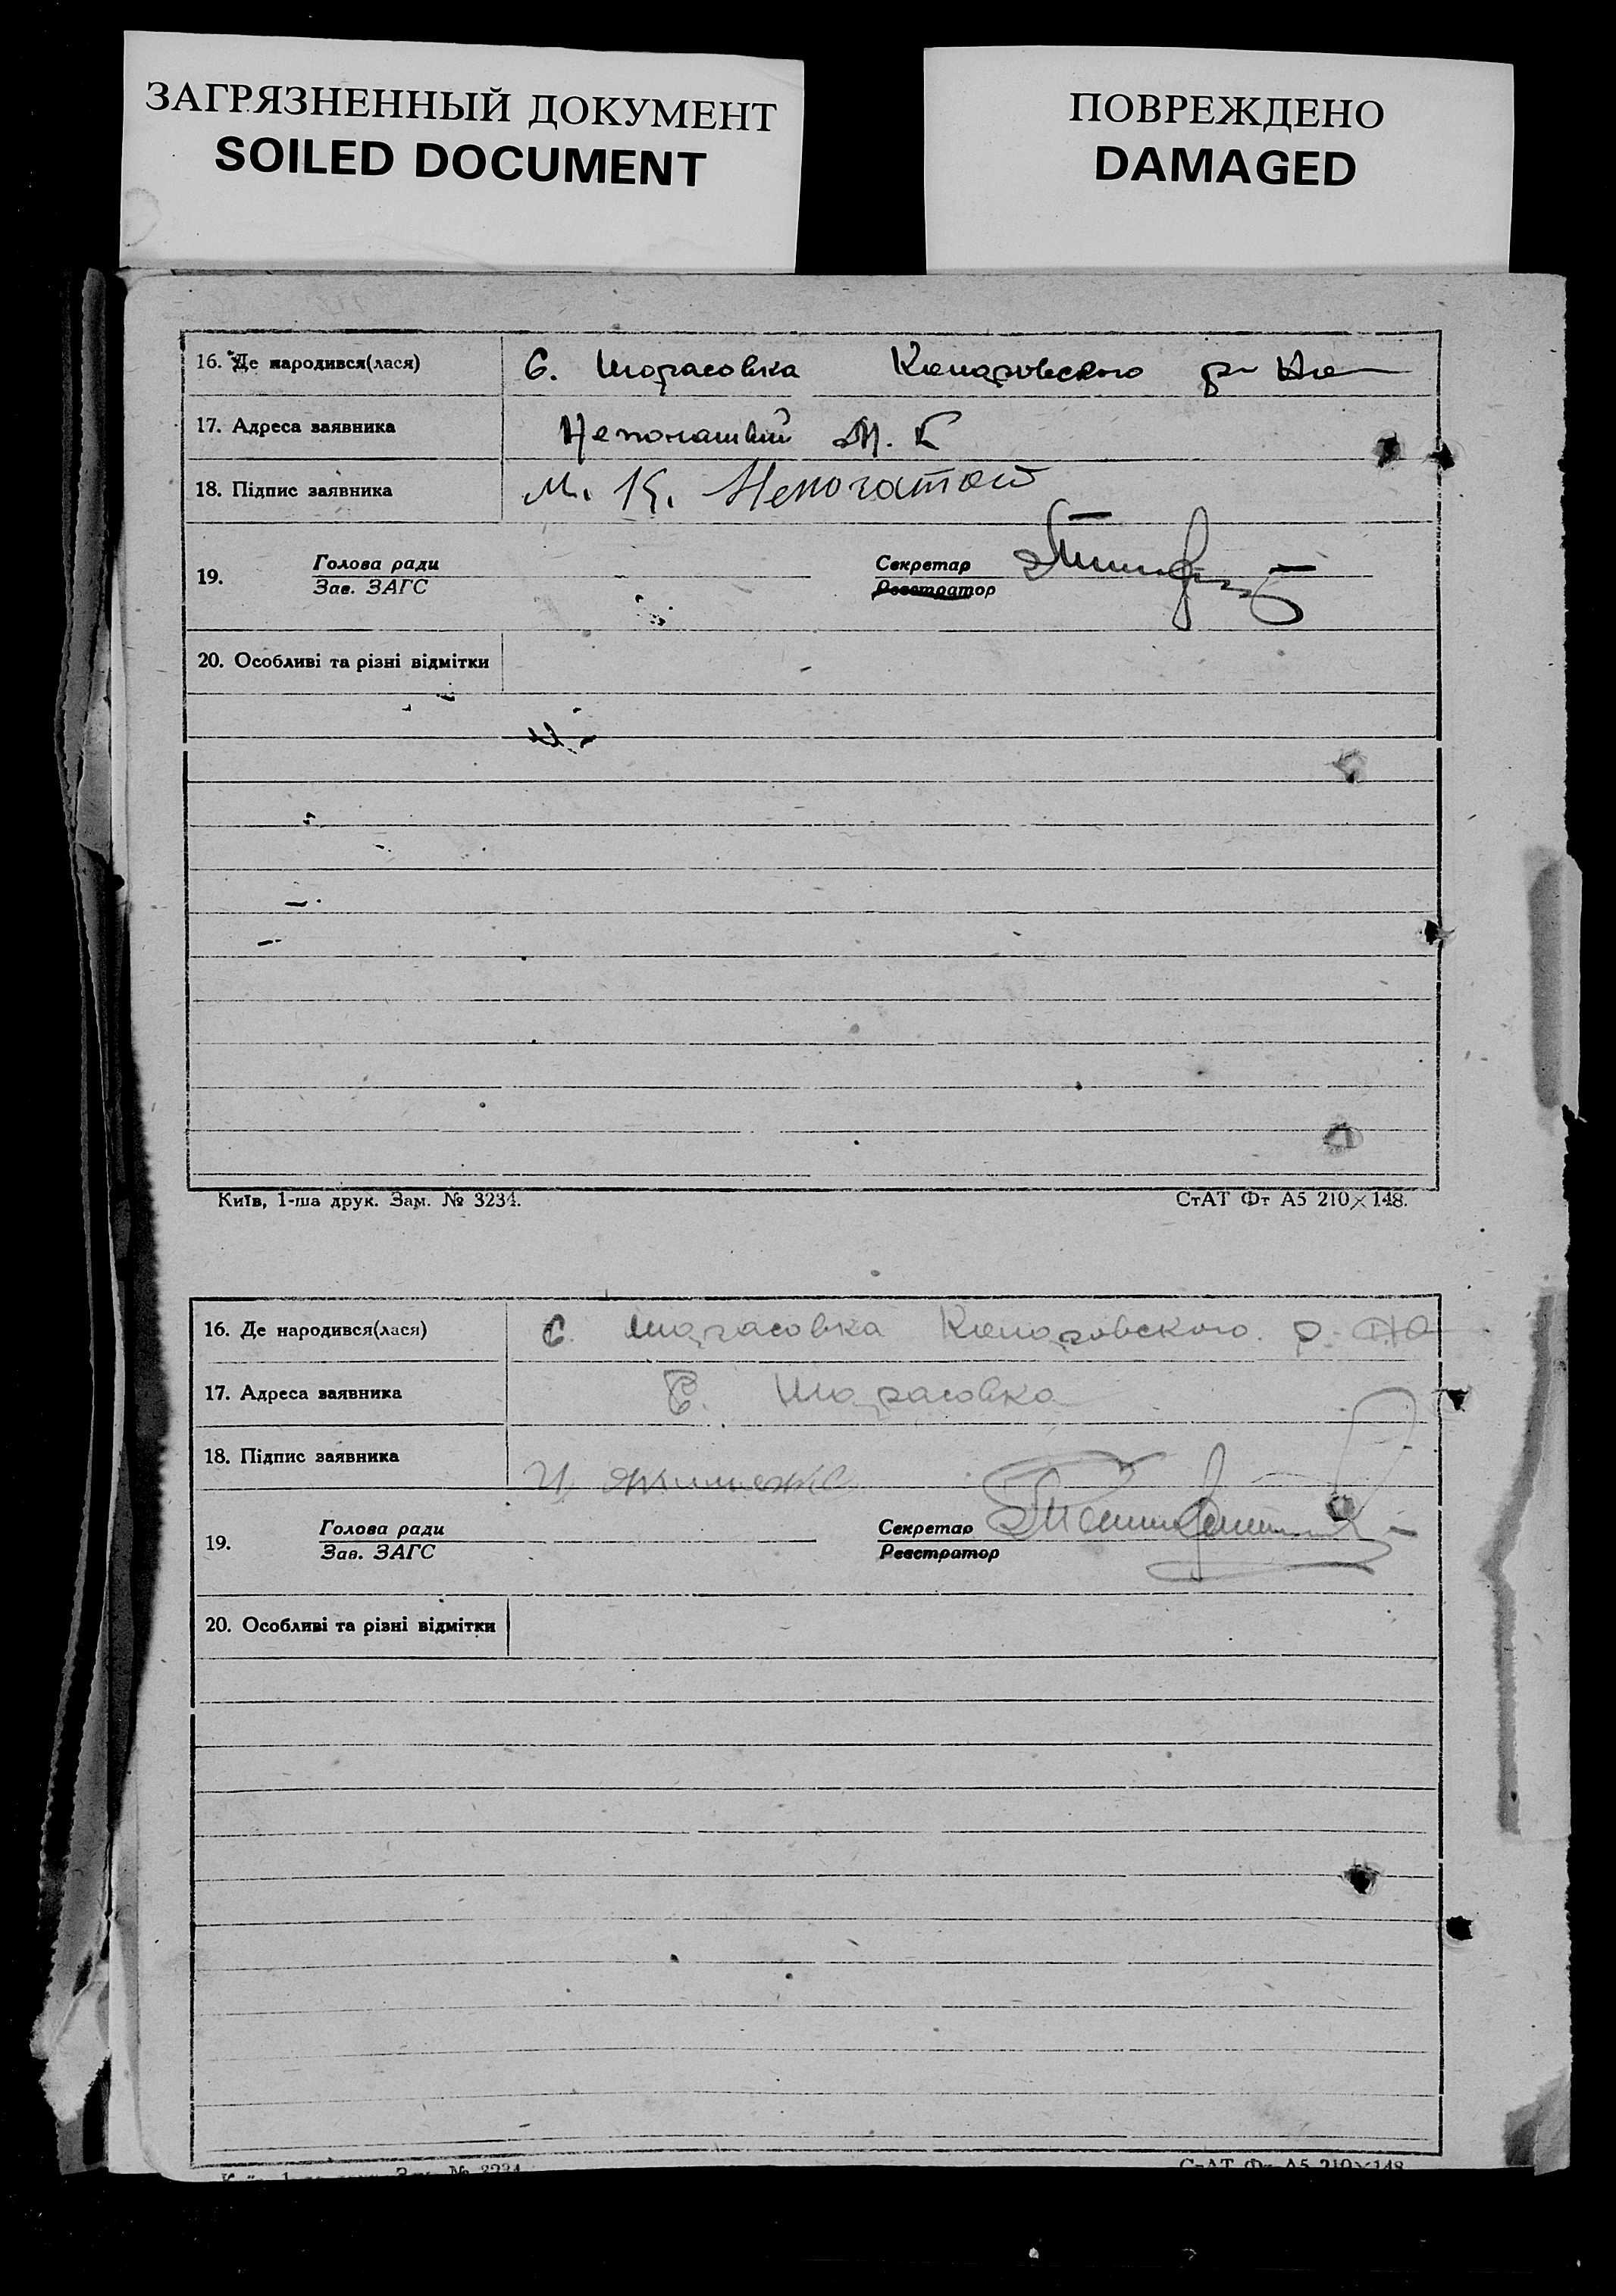 ЗАГРЯЗНЕННЫЙ ДОКУМЕНТ
SOILED DOCUMENT
ПОВРЕЖДЕНО
DAMAGED
16. Де народився(лася) С. Тарасовка р-на
17. Адреса заявника Непочатий М. К
18. Підпис заявника М. К. Непочатой
19. Голова ради
Зав. ЗАГС
Секретар
Реєстратор
20. Особливі та різні відмітки
Київ, 1-ша друк. Зам. № 3234. СтАТ Фт А5 210×148.
16. Де народився(лася) С. Тарасовка р-на
17. Адреса заявника С. Тарасовка
18. Підпис заявника
19. Голова ради
Зав. ЗАГС
Секретар
Реєстратор
20. Особливі та різні відмітки
№ 3234 СтАТ Фт А5 210×148